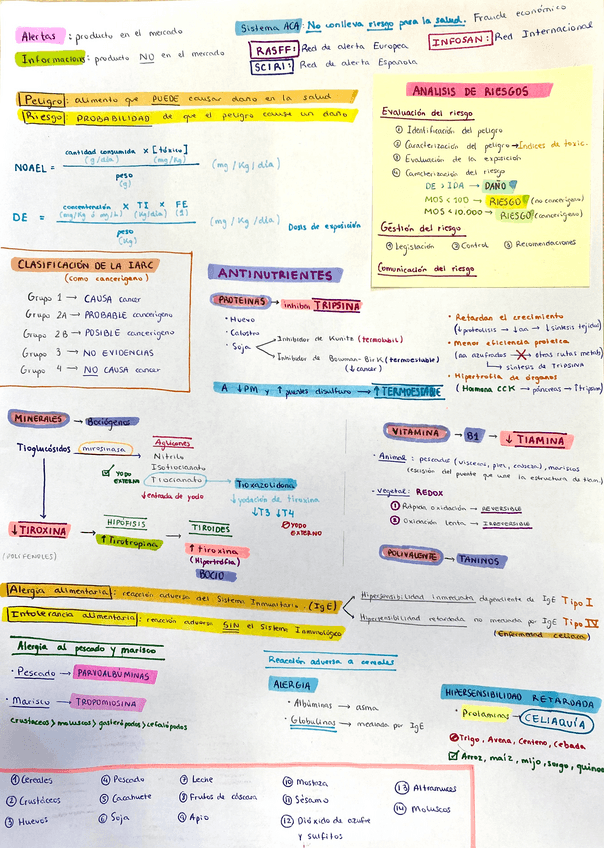 Alertas : producto en el mercado
Informacions : producto NO en el mercado
Sistema ACA: No conlleva riesgo para la salud. Fraude económico
RASFF: Red de alerta Europea
INFOSAN: Red Internacional
SCIRI: Red de alerta Española
Peligro: alimento que PUEDE causar daño en la salud
Riesgo: PROBABILIDAD de que el peligro cause un daño
NOAEL = cantidad consumida × [tóxico] (mg/kg/día)
(g/día) (mg/kg)
peso
(g)
DE = concentración × TI × FE (mg/kg/día) Dosis de exposición
(mg/kg ó mg/L) (kg/día) (1)
peso
(kg)
ANÁLISIS DE RIESGOS
Evaluación del riesgo
① Identificación del peligro
② Caracterización del peligro → Índices de toxic.
③ Evaluación de la exposición
④ Caracterización del riesgo
DE > IDA → DAÑO
MOS < 100 → RIESGO (no cancerígeno)
MOS < 10.000 → RIESGO (cancerígeno)
Gestión del riesgo
① Legislación ② Control ③ Recomendaciones
Comunicación del riesgo
CLASIFICACIÓN DE LA IARC
(como cancerígeno)
Grupo 1 → CAUSA cancer
Grupo 2A → PROBABLE cancerígeno
Grupo 2B → POSIBLE cancerígeno
Grupo 3 → NO EVIDENCIAS
Grupo 4 → NO CAUSA cancer
ANTINUTRIENTES
PROTEINAS → inhiben TRIPSINA
• Huevo
• Calostro
• Soja
Inhibidor de Kunitz (termolabil)
Inhibidor de Bowman-Birk (termoestable)
(↓ cancer)
A ↓PM y ↑ puentes disulfuro → ↑ TERMOESTABLE
• Retardan el crecimiento
(↓ proteolisis → ↓aa → ↓ síntesis tejidos)
• Menor eficiencia proteica
(aa azufrados → otras rutas metab)
↳ síntesis de Tripsina
• Hipertrofia de órganos
(Hormona CCK → páncreas → ↑tripsina)
MINERALES → Bociógenos
Tioglucósidos mirosinasa
Aglucones
Nitrilo
Isotiocianato
Tiocianato
↓ entrada de yodo
YODO EXTERNO
Tioxazolidona
↓ yodación de tiroxina
↓T3 ↓T4
YODO EXTERNO
↓ TIROXINA
(POLIFENOLES)
HIPÓFISIS
↑ Tirotropina
TIROIDES
↑ tiroxina
(Hipertrofia)
BOCIO
VITAMINA → B1 → ↓ TIAMINA
• Animal: pescados (vísceras, piel, cabeza), mariscos
(escisión del puente que une la estructura de tiam.)
• Vegetal: REDOX
① Rápida oxidación → REVERSIBLE
② Oxidación lenta → IRREVERSIBLE
POLIVALENTE → TANINOS
Alergia alimentaria: reacción adversa del Sistema Inmunitario. (IgE)
Intolerancia alimentaria: reacción adversa SIN el Sistema Inmunológico
Hipersensibilidad inmediata dependiente de IgE Tipo I
Hipersensibilidad retardada no mediada por IgE Tipo IV
(Enfermedad celiaca)
Alergia al pescado y marisco
• Pescado → PARVOALBÚMINAS
• Marisco → TROPOMIOSINA
crustáceos > moluscos > gasterópodos > cefalópodos
Reacción adversa a cereales
ALERGIA
• Albúminas → asma
• Globulinas → mediada por IgE
HIPERSENSIBILIDAD RETARDADA
• Prolaminas → CELIAQUÍA
Trigo, Avena, Centeno, cebada
Arroz, maíz, mijo, sorgo, quinoa
① Cereales
② Crustáceos
③ Huevos
④ Pescado
⑤ Cacahuete
⑥ Soja
⑦ Leche
⑧ Frutos de cáscara
⑨ Apio
⑩ Mostaza
⑪ Sésamo
⑫ Dióxido de azufre
y sulfitos
⑬ Altramuces
⑭ Moluscos